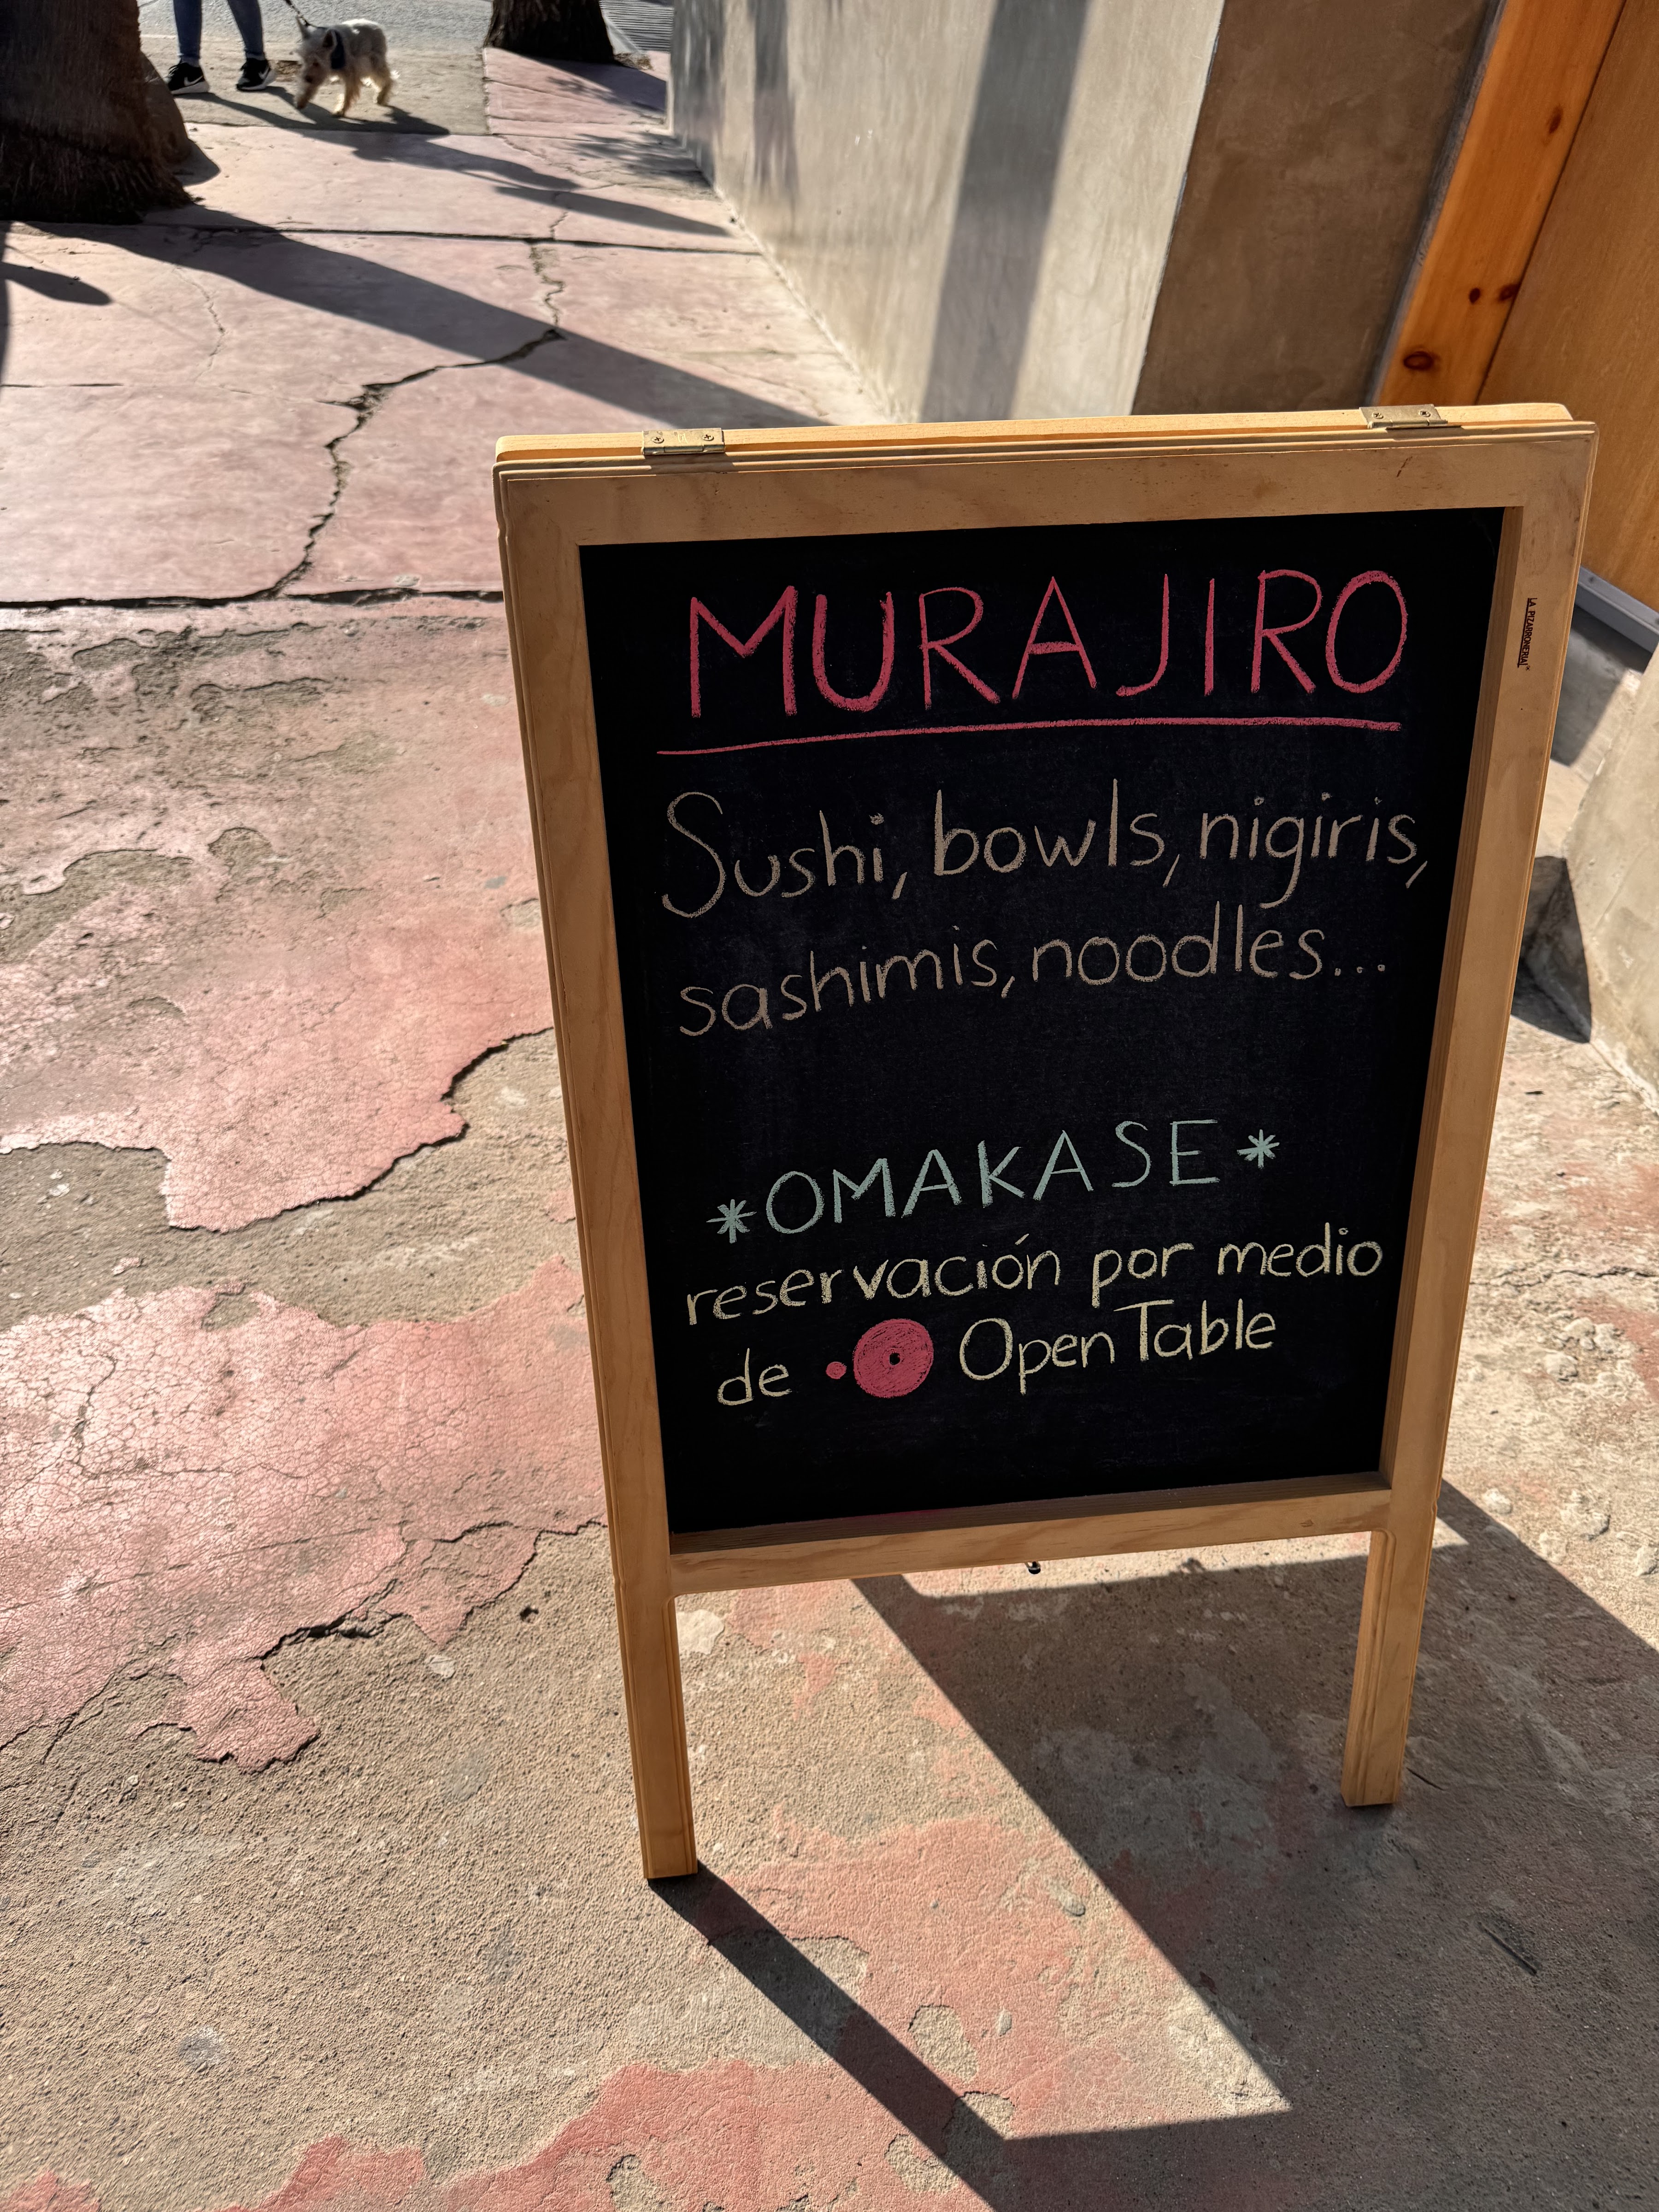 MURAJIRO
Sushi, bowls, nigiris,
sashimis, noodles...
*OMAKASE*
reservación por medio
de Open Table
LA PIZARRONERIA